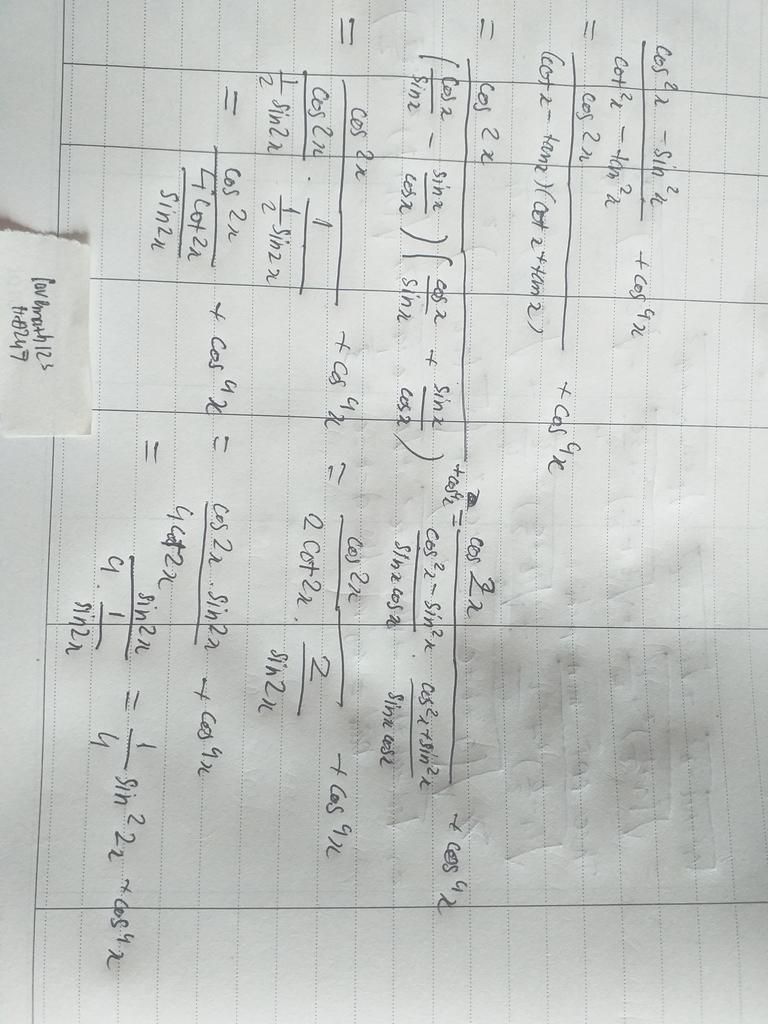 cos²x − sin²x / cot²x − tan²x + cos⁴x
= cos2x / (cot x − tanx)(cot x + tanx) + cos⁴x
= cos2x / (cosx/sinx − sinx/cosx)(cosx/sinx + sinx/cosx) + cos⁴x = cos2x / cos²x − sin²x/sinx cosx · cos²x + sin²x/sinx cosx + cos⁴x
= cos2x / cos2x/½ sin2x · 1/½ sin2x + cos⁴x = cos2x / 2cot2x · 2/sin2x + cos⁴x
= cos2x / 4cot2x/sin2x + cos⁴x = cos2x · sin2x / 4cot2x + cos⁴x
= sin2x / 4 · 1/sin2x = 1/4 sin²2x + cos⁴x